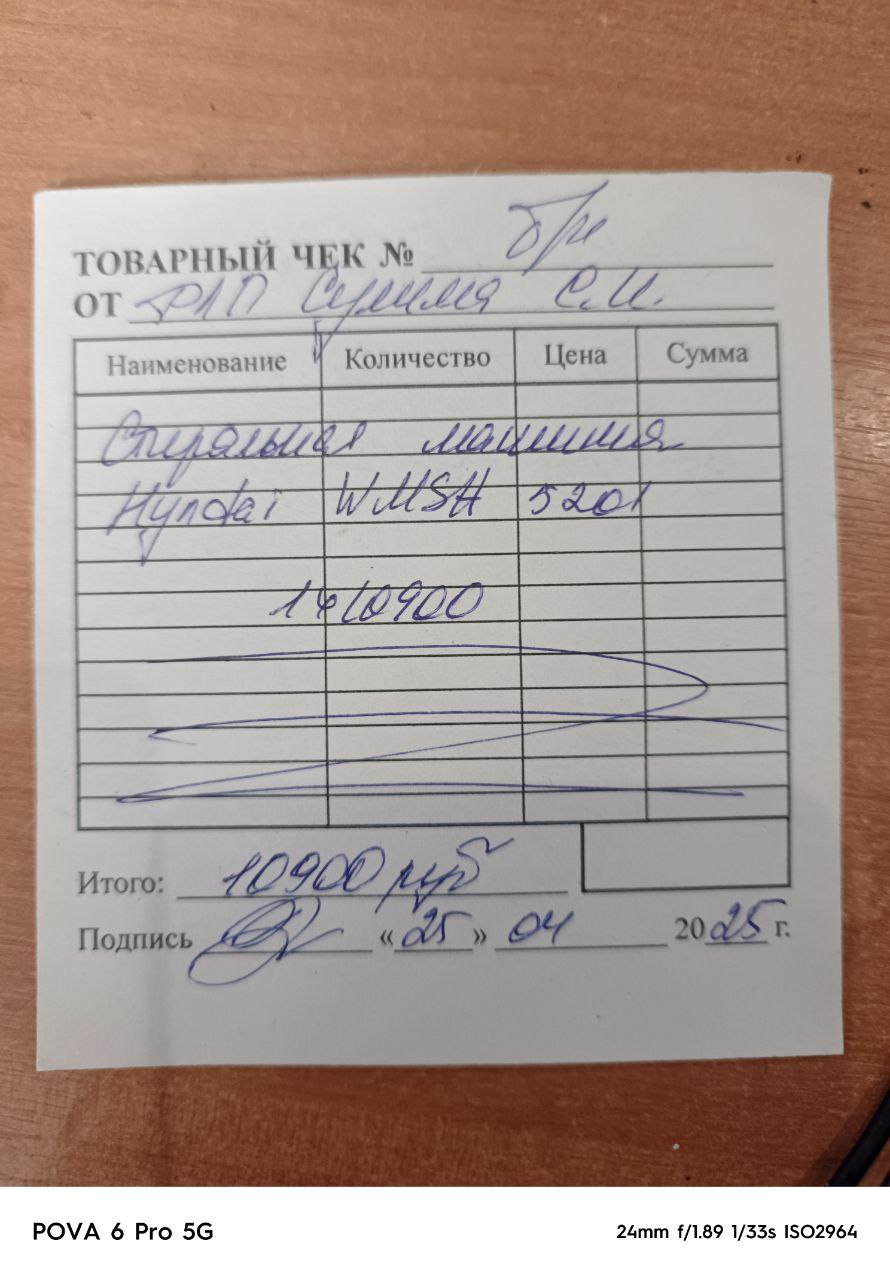 ТОВАРНЫЙ ЧЕК № б/н
ОТ ФЛП С.И.
Наименование Количество Цена Сумма
Стиральная машинка
Hyndai WMSH 5201
10900
Итого: 10900 руб
Подпись «25» 04 2025 г.
POVA 6 Pro 5G
24mm f/1.89 1/33s ISO2964